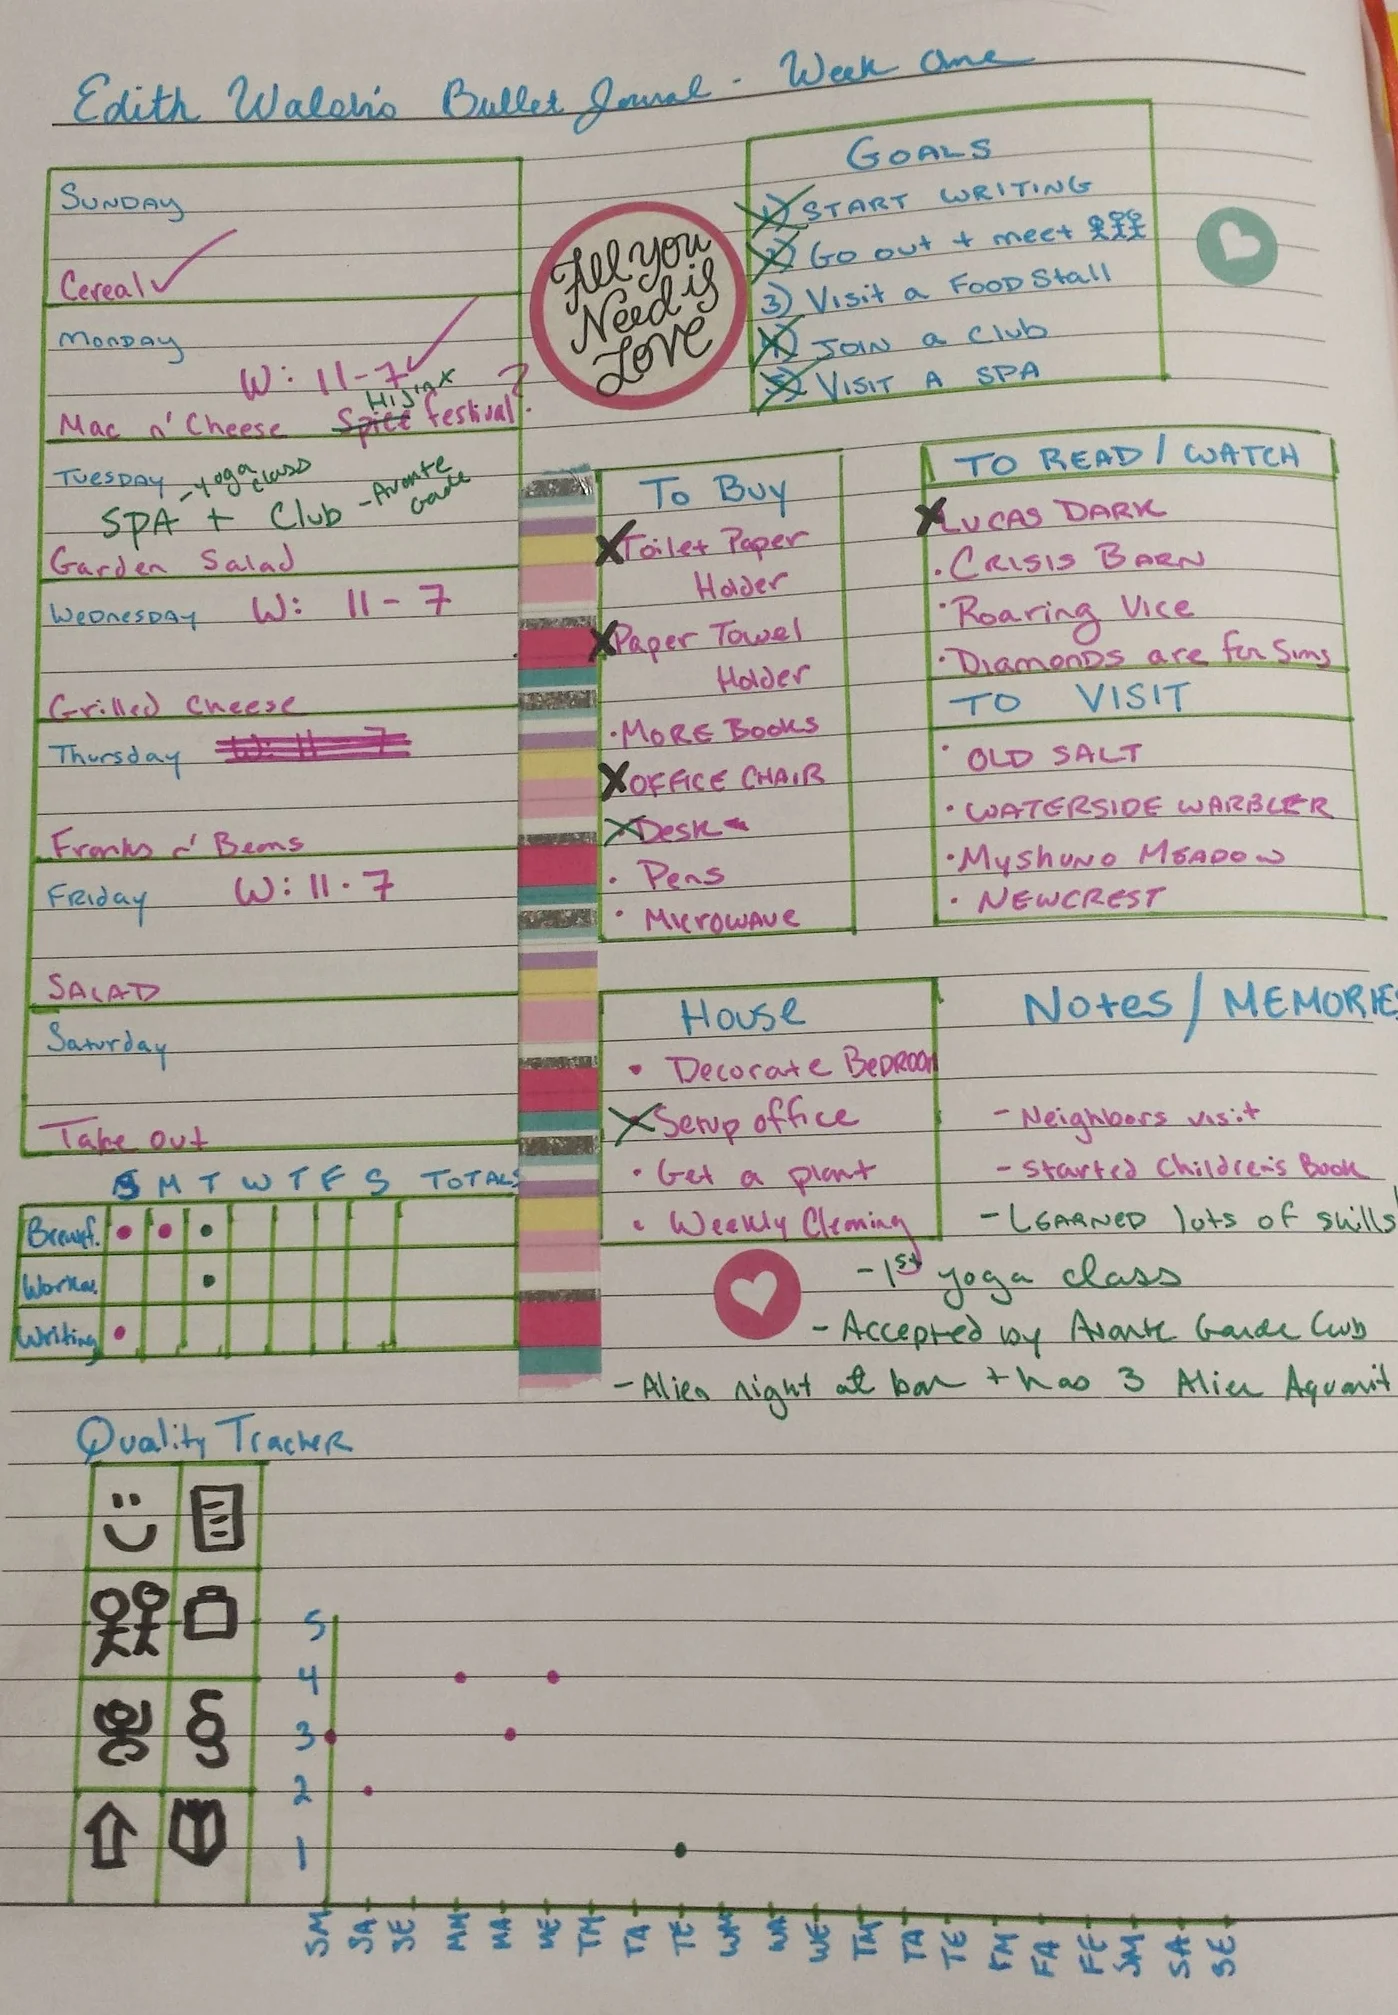 Edith Walsh's Bullet Journal - Week One
SUNDAY
Cereal
MONDAY
W: 11-7
HIJINX
Mac n' Cheese Spice festival?
TUESDAY -yoga class
SPA + Club -Avante Garde
Garden Salad
WEDNESDAY W: 11-7
Grilled Cheese
Thursday W: 11-7
Franks n' Beans
FRIDAY W: 11-7
SALAD
Saturday
Take out
S M T W T F S TOTALS
Breakf.
Workou.
Writing
All you
Need is
Love
GOALS
1) START WRITING
2) GO out + meet
3) Visit a FOOD Stall
4) JOIN a Club
5) VISIT A SPA
TO BUY
Toilet Paper
Holder
Paper Towel
Holder
·MORE BOOKS
OFFICE CHAIR
DESK
· Pens
· MICROWAVE
TO READ / WATCH
LUCAS DARK
·CRISIS BARN
·Roaring Vice
·DIAMONDS are for Sims
TO VISIT
· OLD SALT
·WATERSIDE WARBLER
·MYSHUNO MEADOW
· NEWCREST
HOUSE
• Decorate BEDROOM
Setup office
• Get a plant
• Weekly Cleaning
Notes / MEMORIES
- Neighbors visit
- Started Children's Book
- LEARNED lots of skills!
-1st yoga class
- Accepted by Avante Garde Club
-Alien night at bar + has 3 Alien Aquavit
Quality TRACKER
5
4
3
2
1
SM SA SE MM MA ME TM TA TE WM WA WE TM TA TE FM FA FE SM SA SE